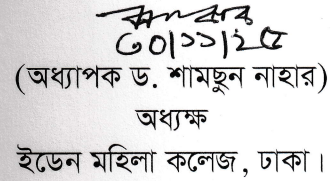 ৩০|১১|২৫
(অধ্যাপক ড. শামছুন নাহার)
অধ্যক্ষ
ইডেন মহিলা কলেজ, ঢাকা।